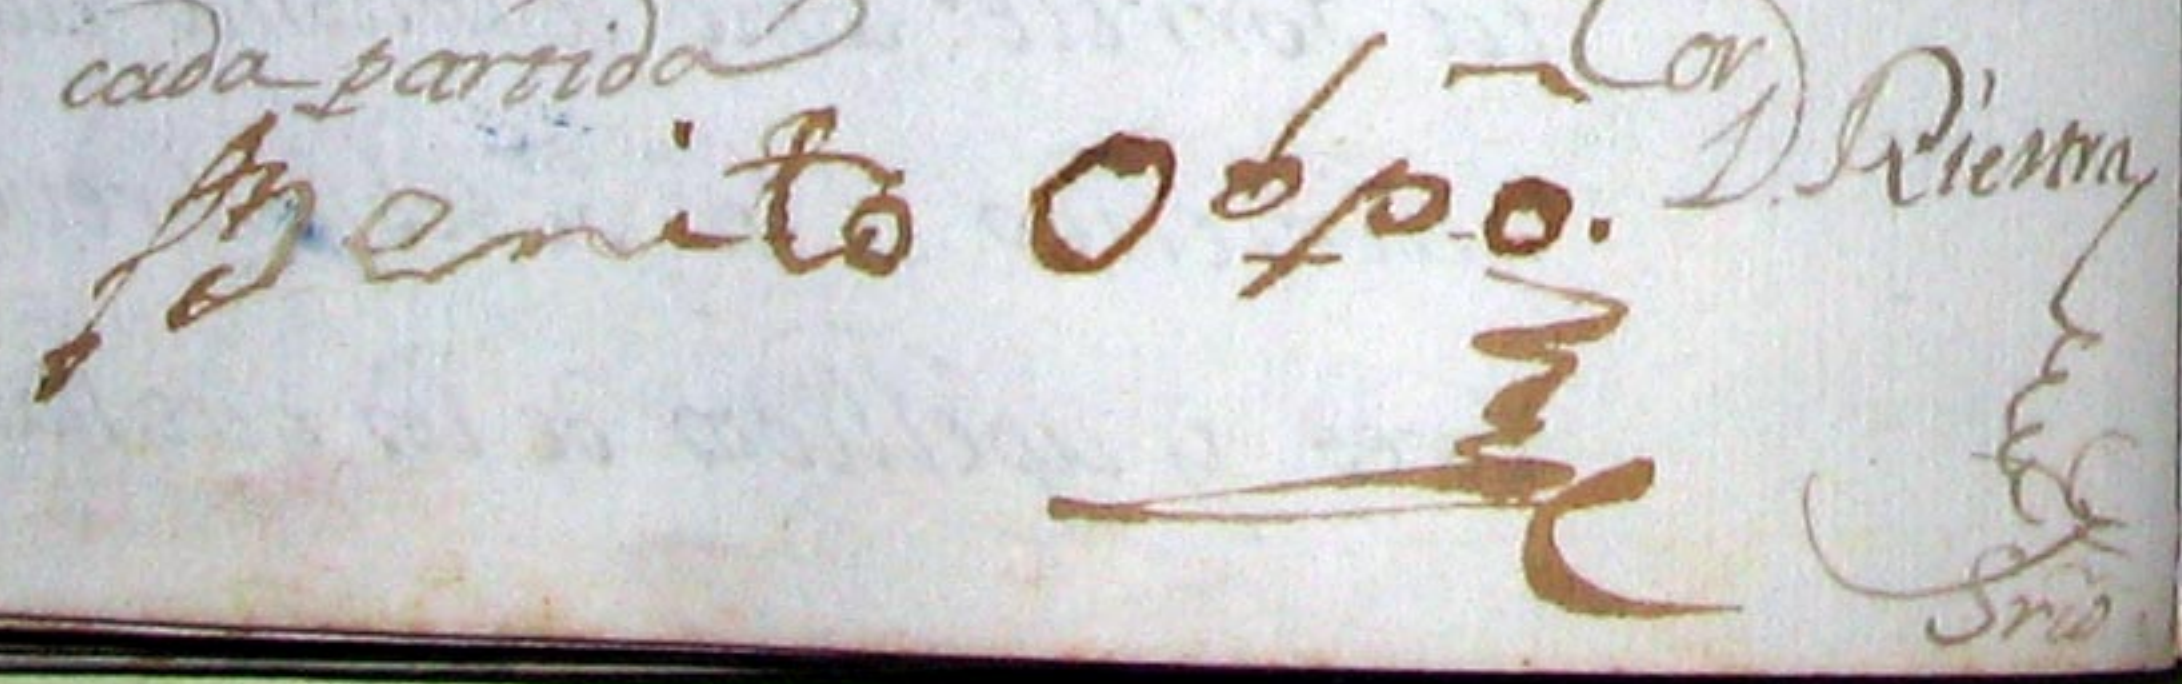 cada partida
Benito Obpo.
Dor D. Riestra
Srio